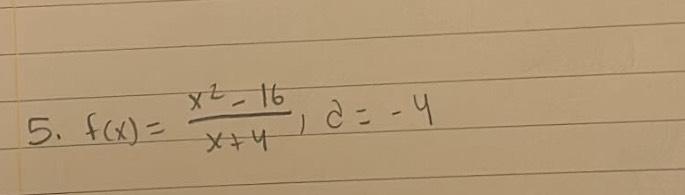 5. f(x) = \frac{x^2 - 16}{x + 4}, a = -4